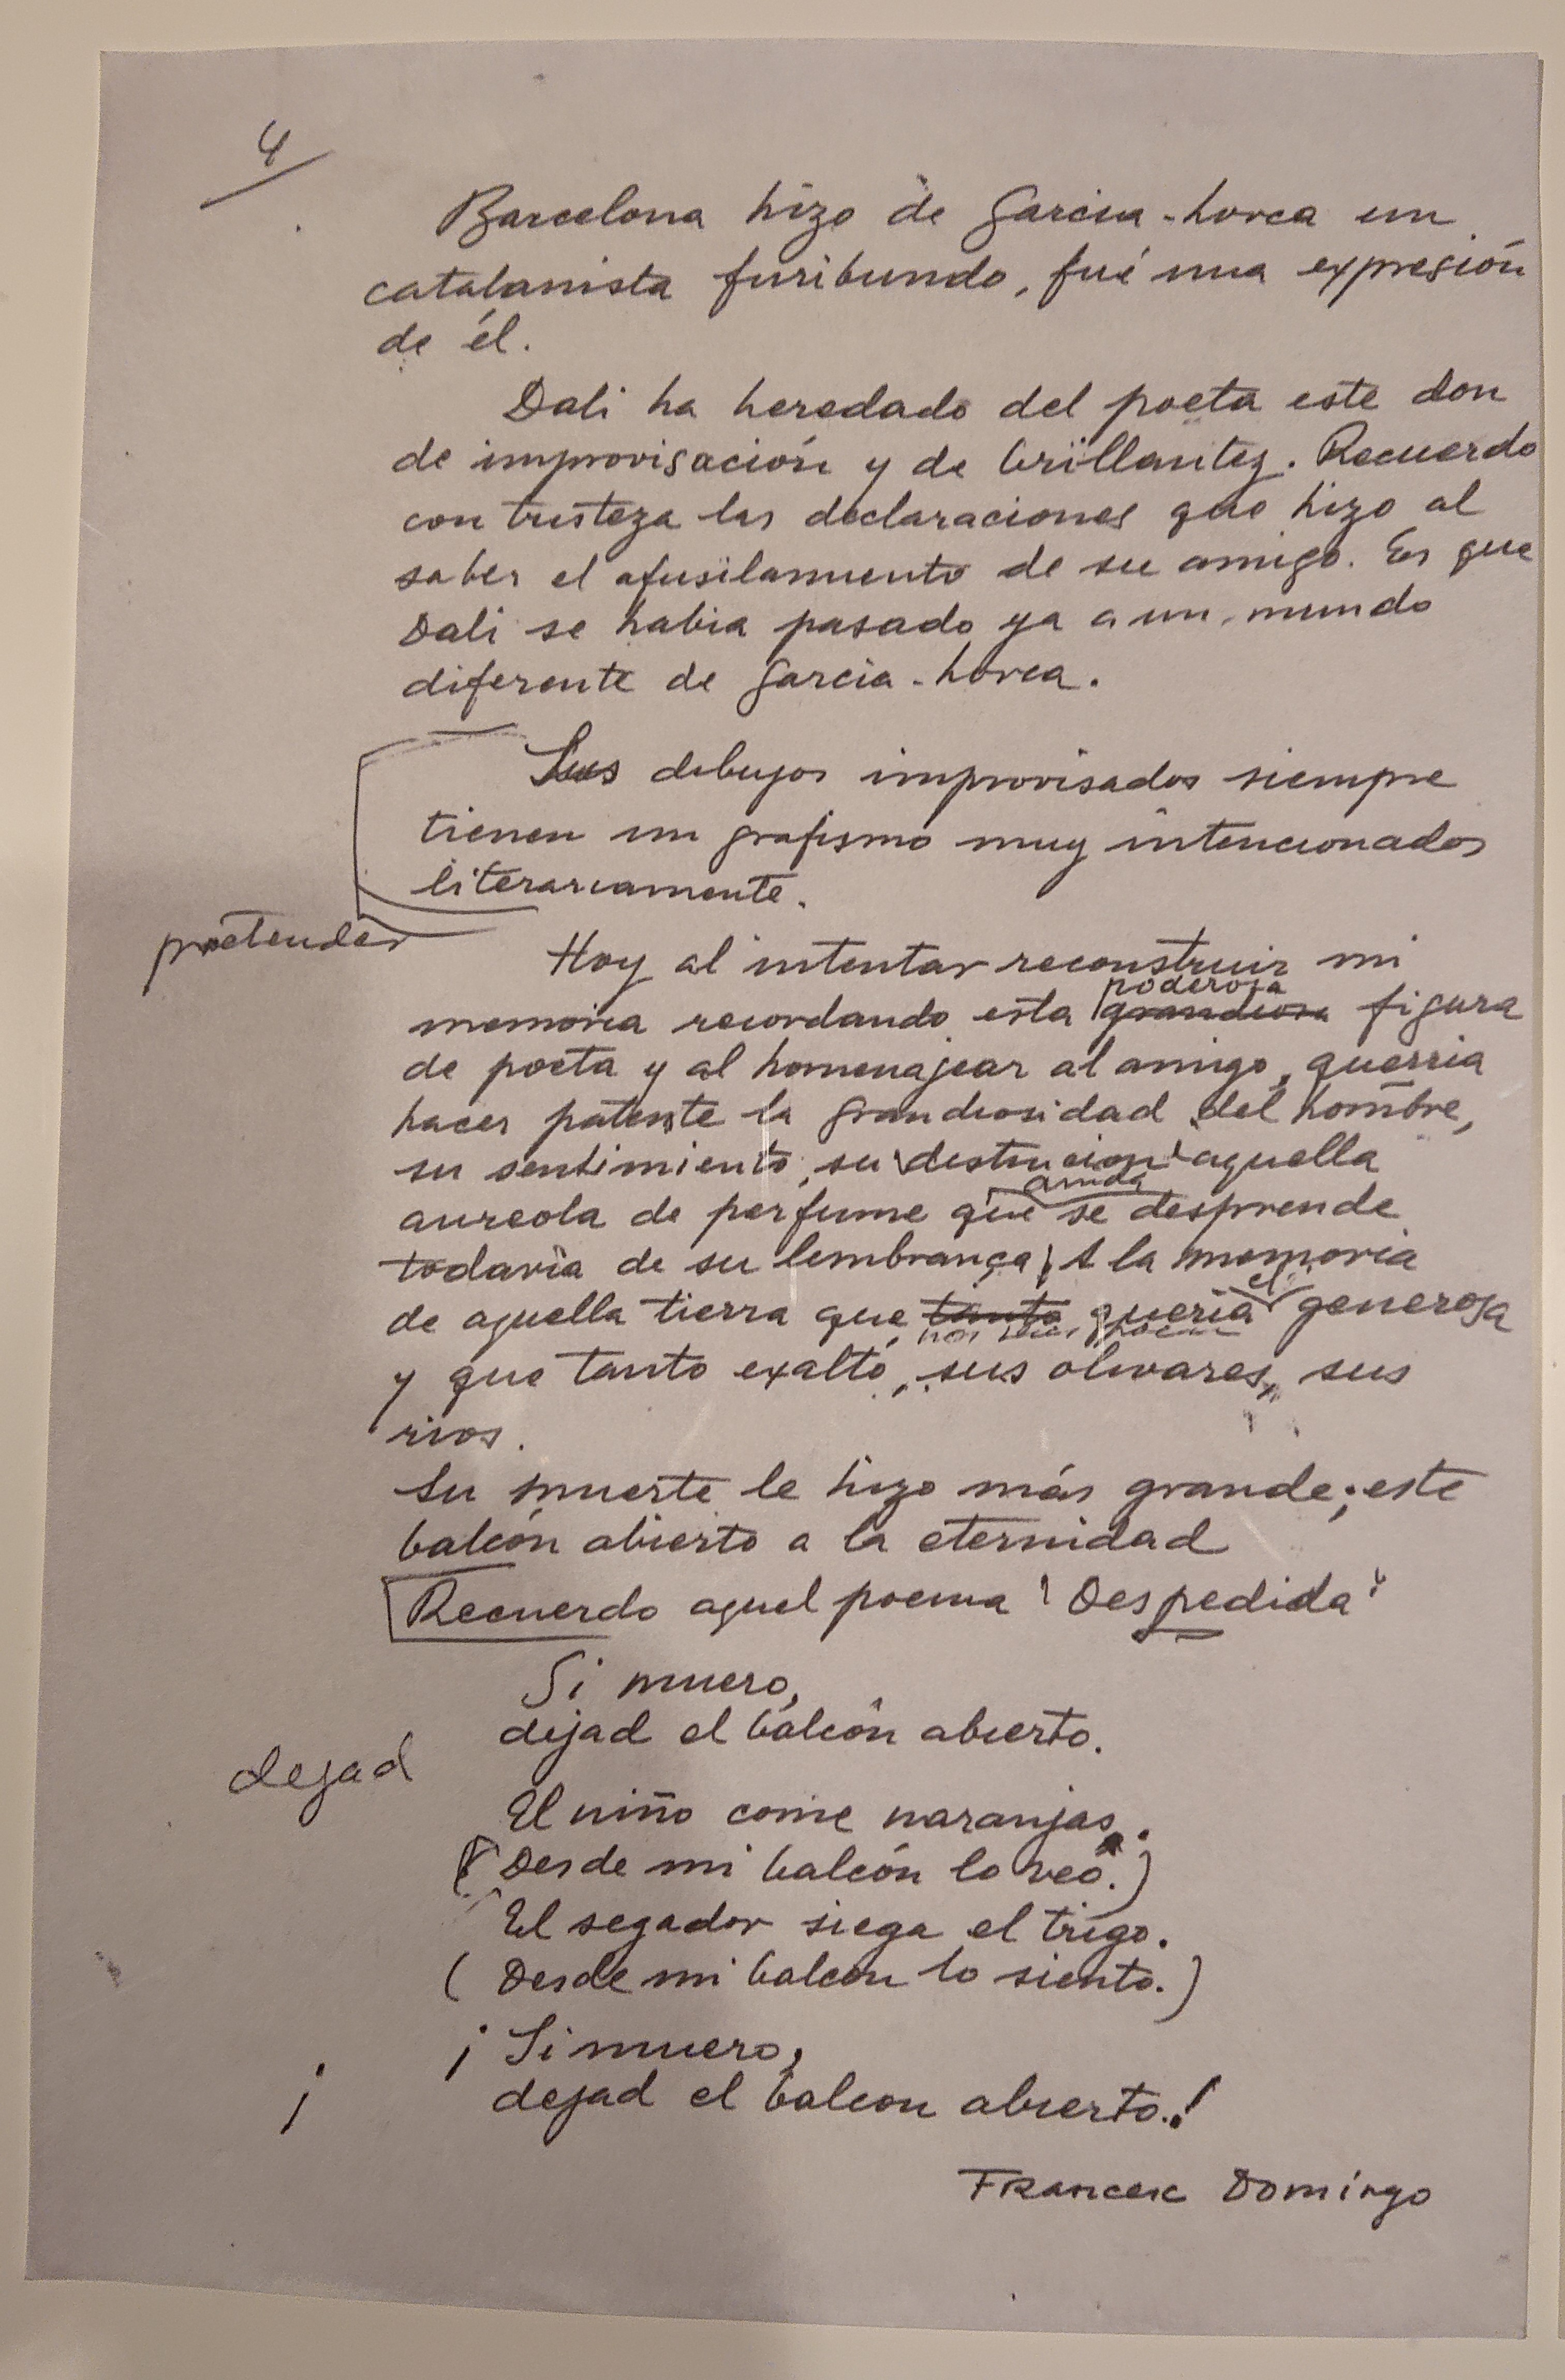 4
Barcelona hizo de Garcia-Lorca un
catalanista furibundo, fué una expresión
de él.
Dali ha heredado del poeta este don
de improvisación y de brillantez. Recuerdo
con tristeza las declaraciones que hizo al
saber el afusilamiento de su amigo. Es que
Dali se habia pasado ya a un mundo
diferente de Garcia-Lorca.
Sus dibujos improvisados siempre
tienen un grafismo muy intencionados
literariamente.
pretender
Hoy al intentar reconstruir mi
poderosa
memoria recordando esta grandiosa figura
de poeta y al homenajear al amigo, querria
hacer patente la grandiosidad del hombre,
su sentimiento, su distincion aquella
ainda
aureola de perfume que se desprende
todavia de su lembrança, A la memoria
el
de aquella tierra que tanto queria generosa
y que tanto exaltó, sus olivares, sus
rios.
Su muerte le hizo más grande; este
balcón abierto a la eternidad
Recuerdo aquel poema "Despedida"
Si muero,
dejad el balcón abierto.
dejad
El niño come naranjas.
(Desde mi balcón lo veo.)
El segador siega el trigo.
(Desde mi balcon lo siento.)
¡Si muero,
¡
dejad el balcon abierto.!
Francesc Domingo